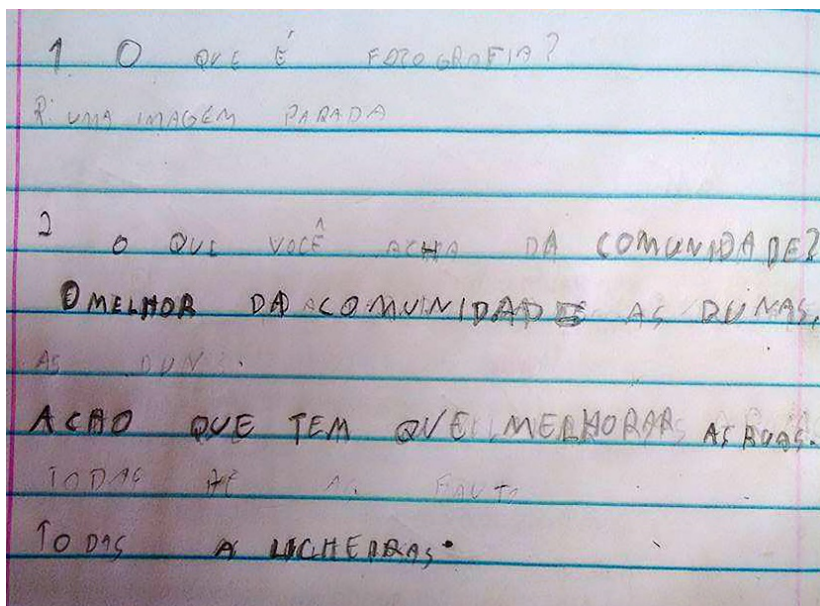 1 O QUE É FOTOGRAFIA?
R: UMA IMAGEM PARADA
2 O QUE VOCÊ ACHA DA COMUNIDADE?
O MELHOR DA COMUNIDADE AS DUNAS.
AS DUN
ACHO QUE TEM QUE MELHORAR AS RUAS.
TODAS AS
TODAS A LICHEIRAS.